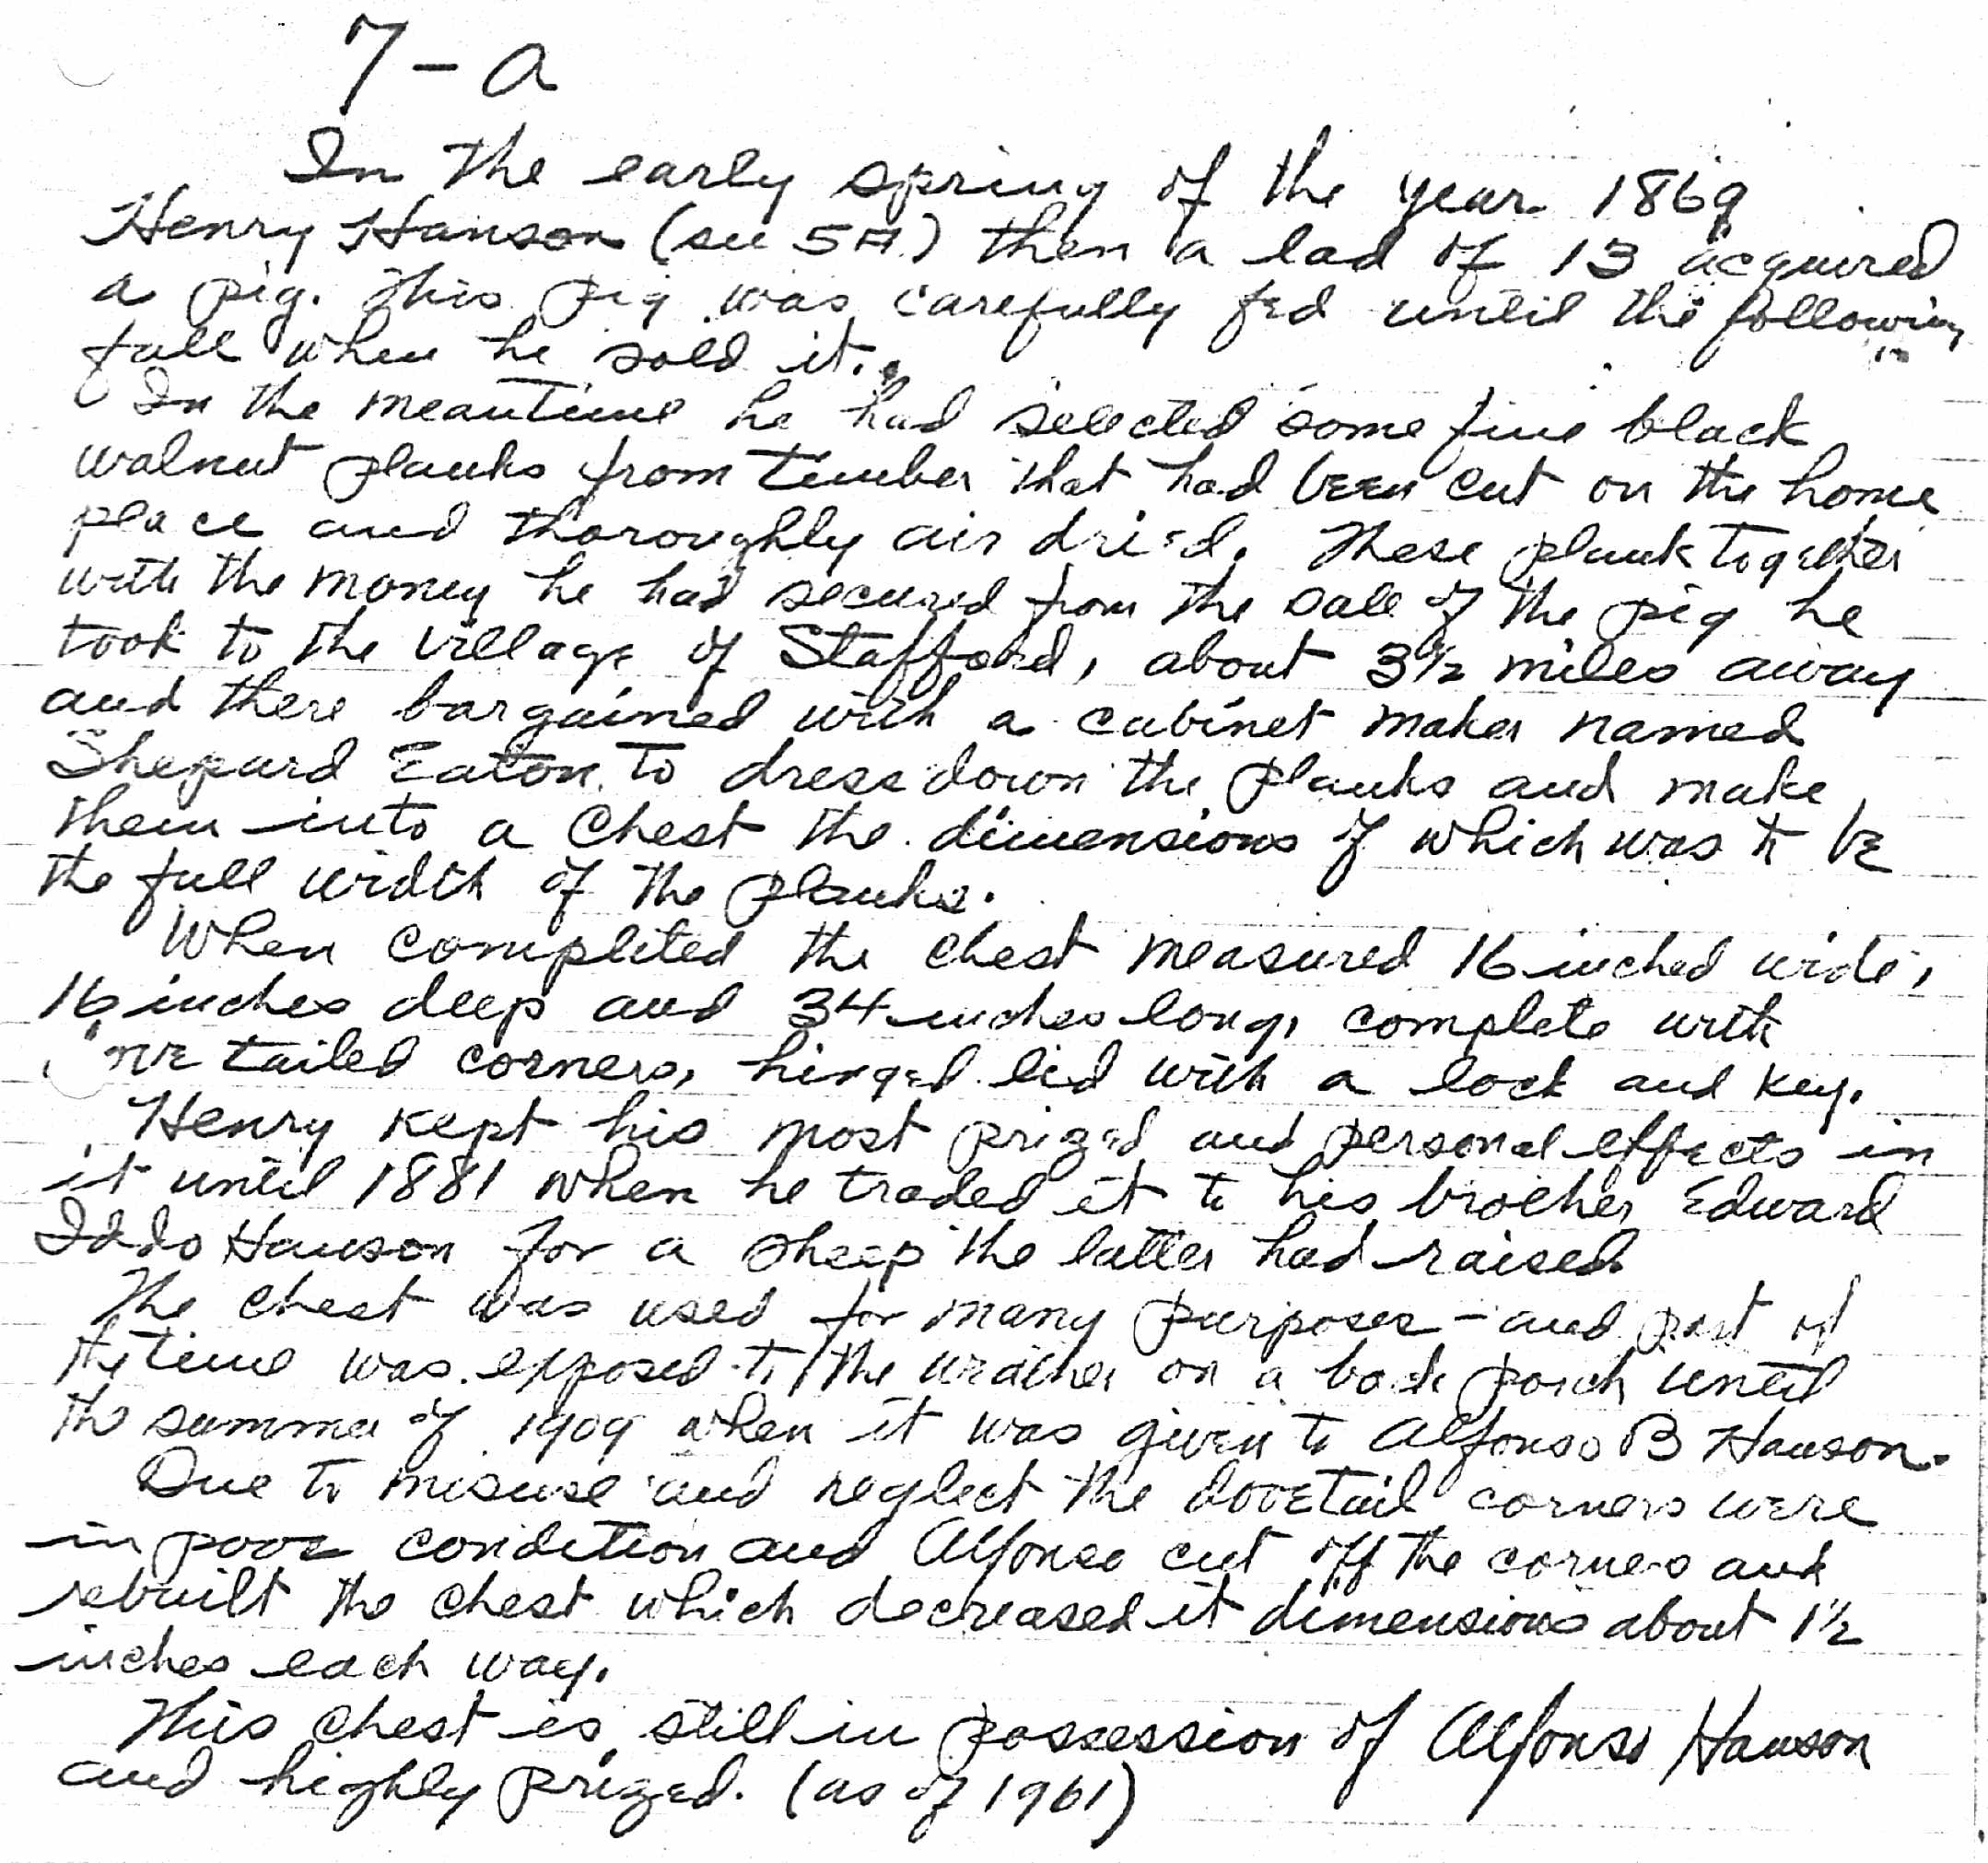 7-a
In the early spring of the year 1869
Henry Hanson (see 5A) then a lad of 13 acquired
a pig. This pig was carefully fed until the following
fall when he sold it.
In the meantime he had selected some fine black
walnut planks from timber that had been cut on the home
place and thoroughly air dried. These plank together
with the money he had secured from the sale of the pig he
took to the village of Stafford, about 3½ miles away
and there bargained with a cabinet maker named
Shepard Eaton to dress down the planks and make
them into a chest the dimensions of which was to be
the full width of the planks.
When completed the chest measured 16 inched wide,
16 inches deep and 34 inches long, complete with
tailed corners, hinged lid with a lock and key.
Henry kept his most prized and personal effects in
it until 1881 when he traded it to his brother Edward
Iddo Hanson for a sheep the latter had raised.
The chest was used for many purposes - and part of
the time was exposed to the weather on a back porch until
the summer of 1909 when it was given to Alfonso B Hanson.
Due to misuse and neglect the dovetail corners were
in poor condition and Alfonso cut off the corners and
rebuilt the chest which decreased it dimensions about 1½
inches each way.
This chest is still in possession of Alfonso Hanson
and highly prized. (as of 1961)